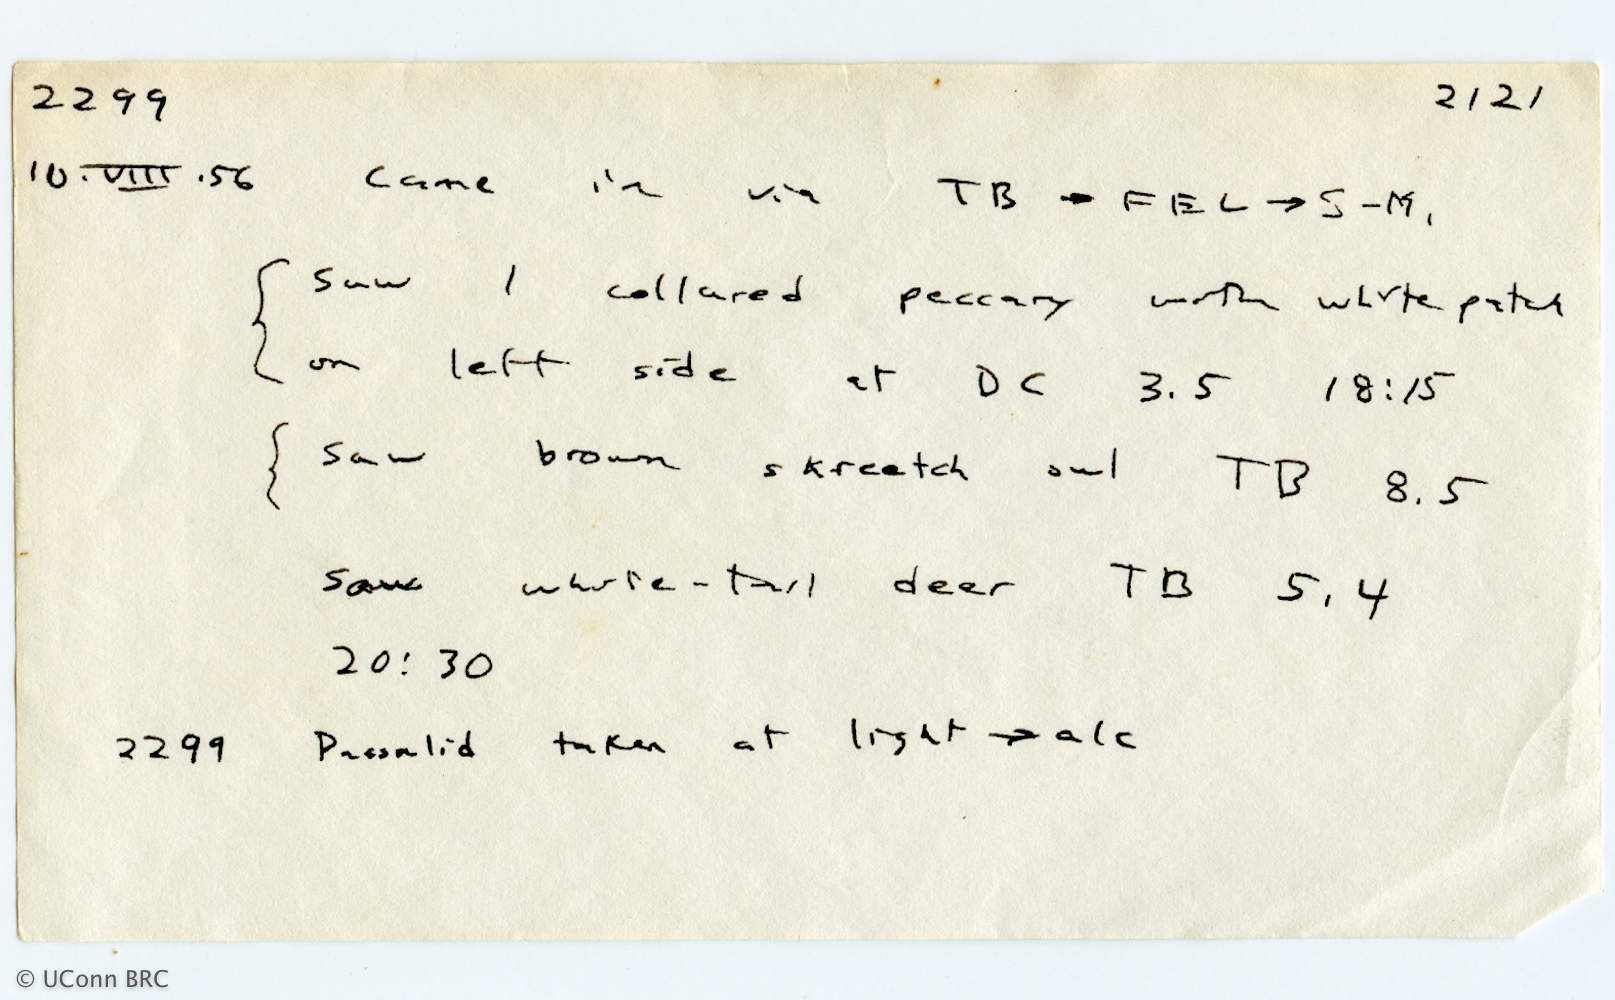 2299 2121
10.VIII.56 Came in via TB → FEL → S-M.
Saw 1 collared peccary with white patch
on left side at DC 3.5 18:15
Saw brown skreetch owl TB 8.5
Saw white-tail deer TB 5.4
20:30
2299 Passalid taken at light → alc
© UConn BRC